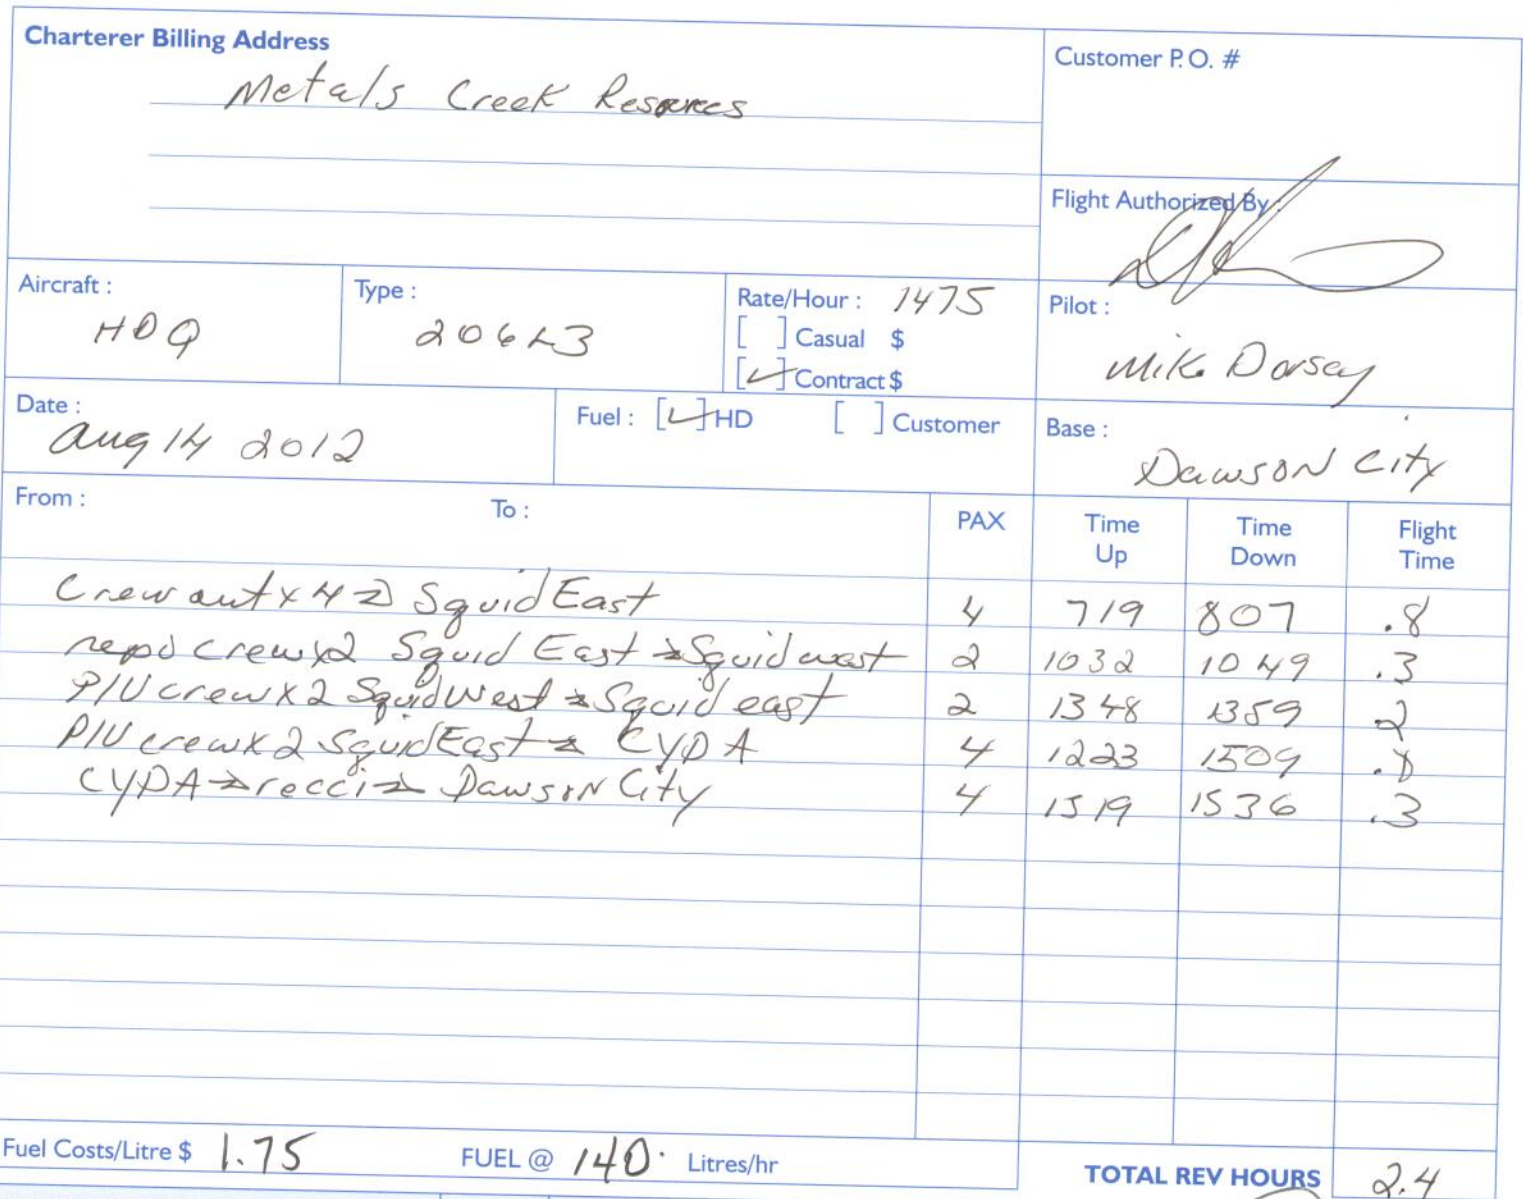 Charterer Billing Address
Metals Creek Resources
Customer P.O. #
Flight Authorized By :
Aircraft :
HDQ
Type :
206L3
Rate/Hour : 1475
[ ] Casual $
[✓] Contract $
Pilot :
Mike Dorsey
Date :
Aug 14 2012
Fuel : [✓] HD [ ] Customer
Base :
Dawson City
From : To : PAX Time Up Time Down Flight Time
Crew out x 4 → Squid East 4 719 807 .8
repo crew x2 Squid East → Squid west 2 1032 1049 .3
P/U crew x 2 Squid West → Squid east 2 1348 1359 .2
P/U crew x 2 Squid East → CYDA 4 1223 1509 .8
CYDA → recci → Dawson City 4 1519 1536 .3
Fuel Costs/Litre $ 1.75 FUEL @ 140. Litres/hr
TOTAL REV HOURS 2.4